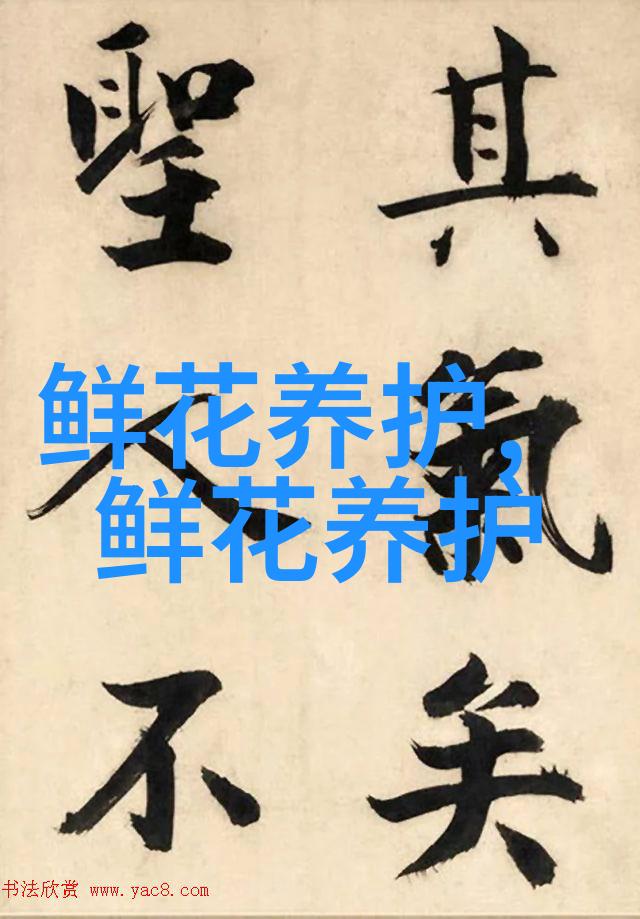 其氣矣
聖人不
鲜花养护,
鲜花养护
书法欣赏 www.yac8.com